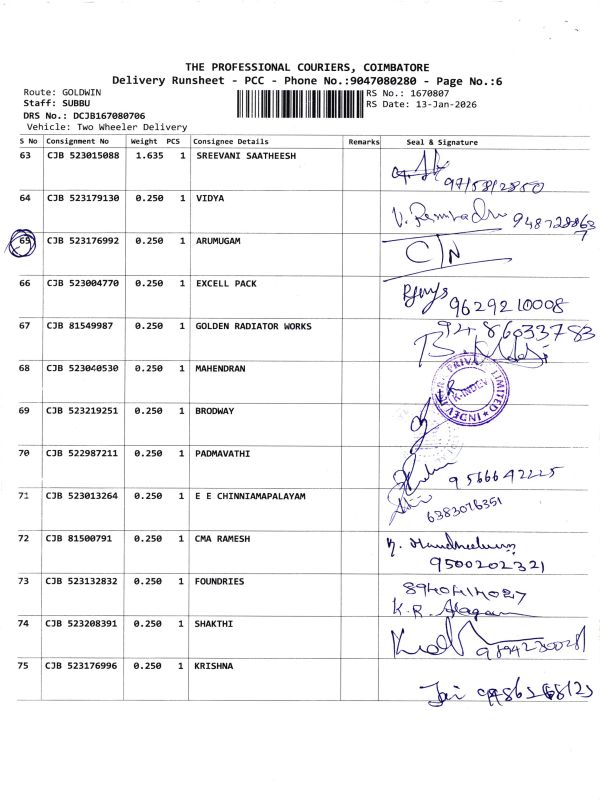 THE PROFESSIONAL COURIERS, COIMBATORE
Delivery Runsheet - PCC - Phone No.:9047080280 - Page No.:6
Route: GOLDWIN
RS No.: 1670807
Staff: SUBBU
RS Date: 13-Jan-2026
DRS No.: DCJB167080706
Vehicle: Two Wheeler Delivery
S No Consignment No Weight PCS Consignee Details Remarks Seal & Signature
63 CJB 523015088 1.635 1 SREEVANI SAATHEESH
9715812850
64 CJB 523179130 0.250 1 VIDYA
65 CJB 523176992 0.250 1 ARUMUGAM
C/N
66 CJB 523004770 0.250 1 EXCELL PACK
9629210008
67 CJB 81549987 0.250 1 GOLDEN RADIATOR WORKS
9486033783
68 CJB 523040530 0.250 1 MAHENDRAN
K-INDEV
69 CJB 523219251 0.250 1 BRODWAY
70 CJB 522987211 0.250 1 PADMAVATHI
9566642225
71 CJB 523013264 0.250 1 E E CHINNIAMPALAYAM
6383076351
72 CJB 81500791 0.250 1 CMA RAMESH
9500202321
73 CJB 523132832 0.250 1 FOUNDRIES
K.R.
74 CJB 523208391 0.250 1 SHAKTHI
75 CJB 523176996 0.250 1 KRISHNA
Jai